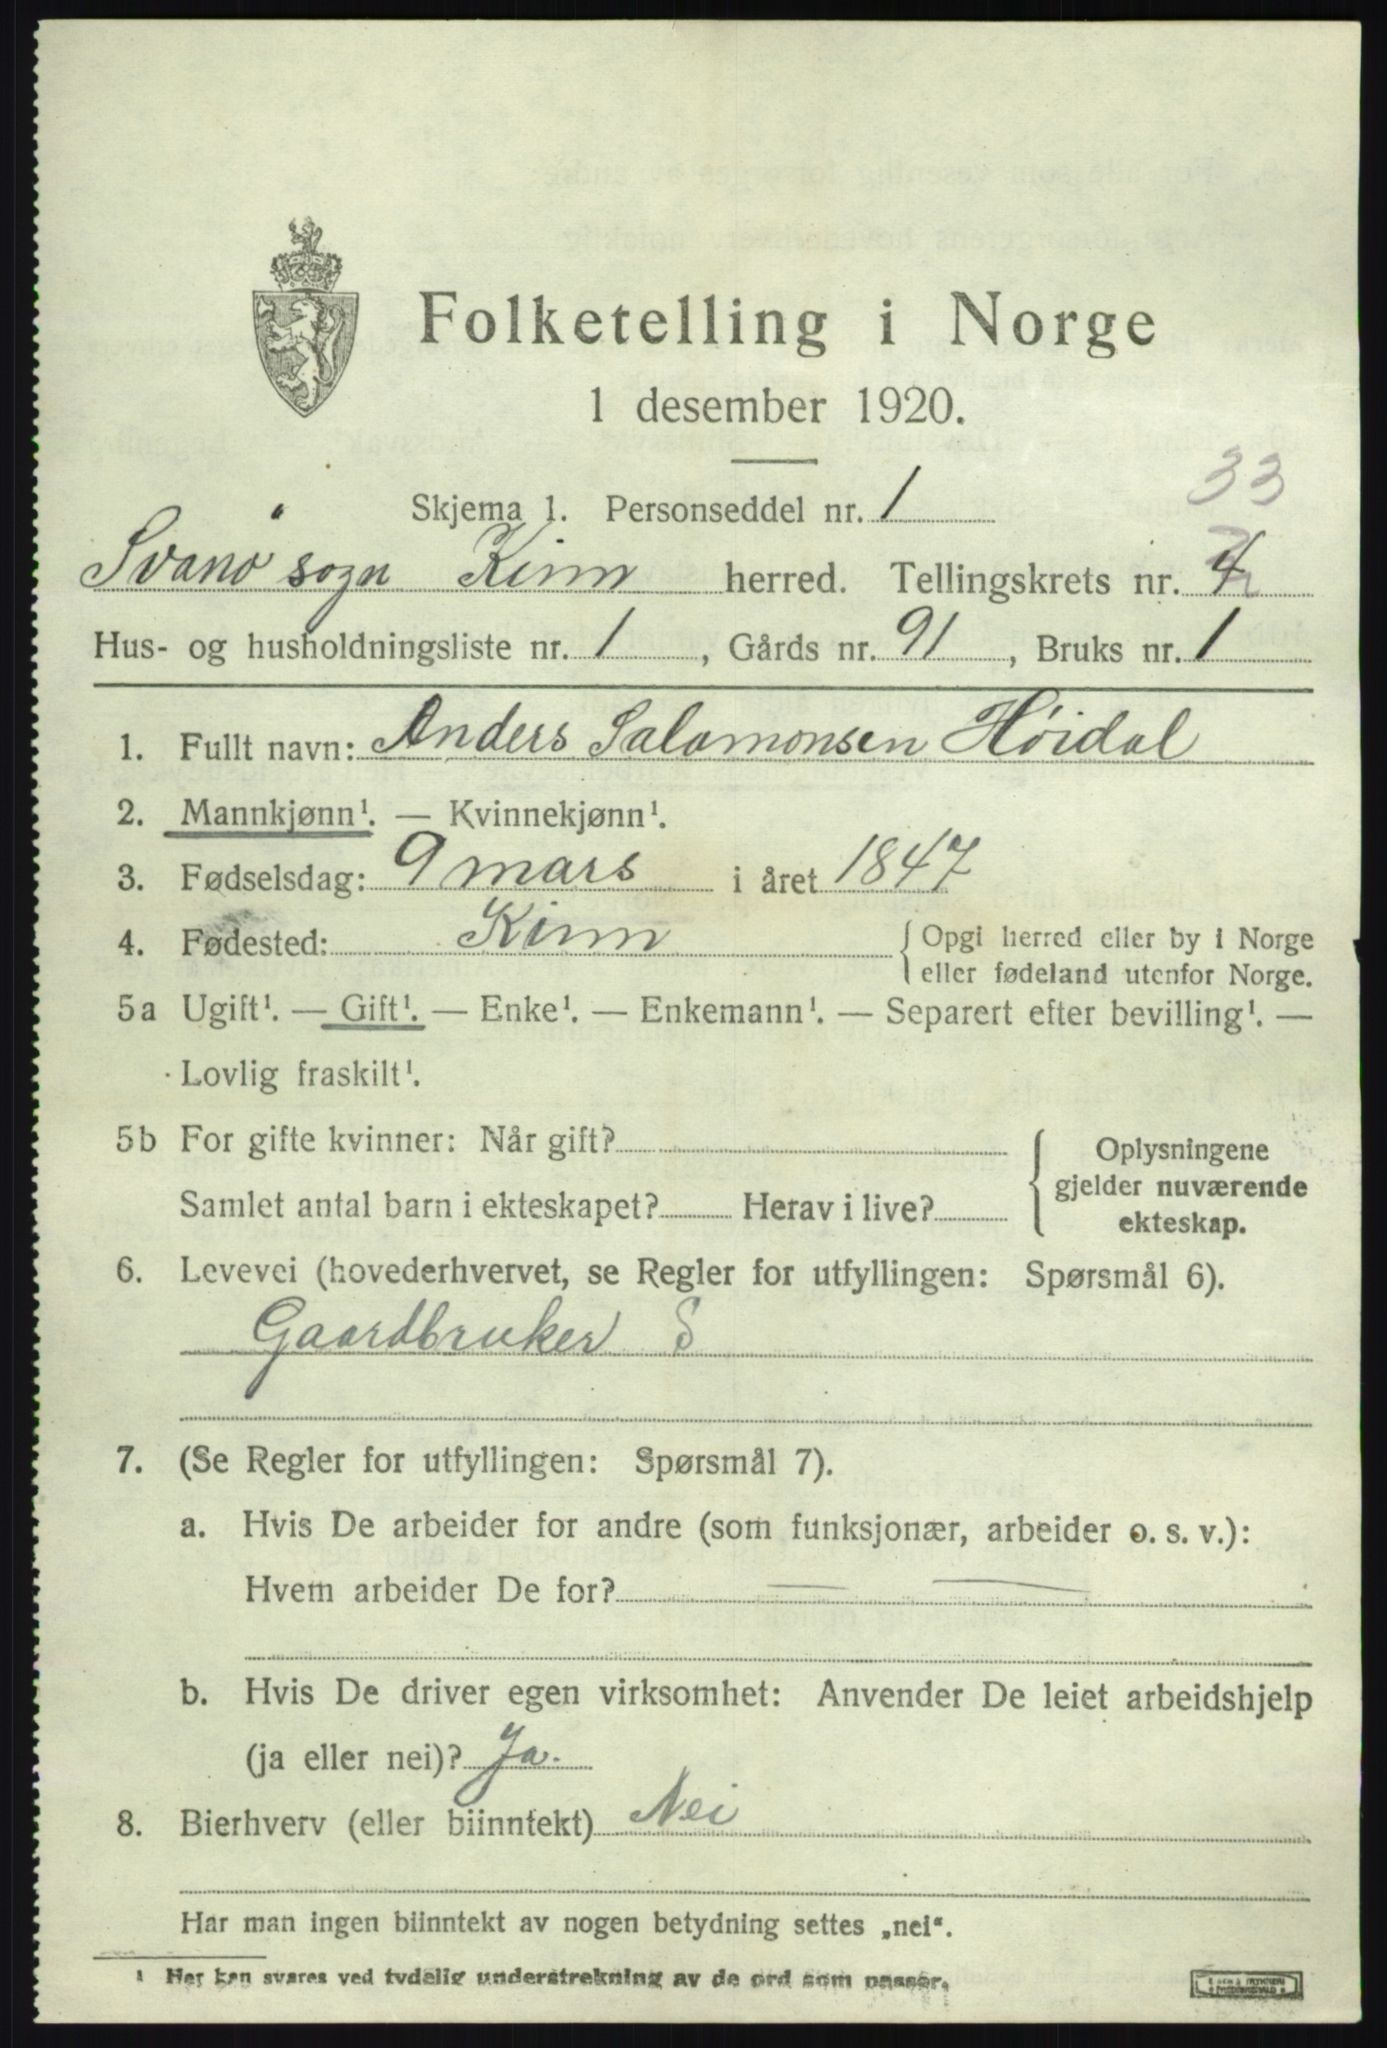 Folketelling i Norge
1 desember 1920.
33
Skjema 1. Personseddel nr. 1
Svanø sogn Kinn herred. Tellingskrets nr. 4
Hus- og husholdningsliste nr. 1, Gårds nr. 91, Bruks nr. 1
1. Fullt navn: Anders Salamonsen Høidal
2. Mannkjønn¹. — Kvinnekjønn¹.
3. Fødselsdag: 9 mars i året 1847
4. Fødested: Kinn { Opgi herred eller by i Norge
eller fødeland utenfor Norge.
5a Ugift¹. — Gift¹. — Enke¹. — Enkemann¹. — Separert efter bevilling¹. —
Lovlig fraskilt¹.
5b For gifte kvinner: Når gift?
Samlet antal barn i ekteskapet? Herav i live?
Oplysningene
gjelder nuværende
ekteskap.
6. Levevei (hovederhvervet, se Regler for utfyllingen: Spørsmål 6).
Gaardbruker S
7. (Se Regler for utfyllingen: Spørsmål 7).
a. Hvis De arbeider for andre (som funksjonær, arbeider o. s. v.):
Hvem arbeider De for? — —
b. Hvis De driver egen virksomhet: Anvender De leiet arbeidshjelp
(ja eller nei)? Ja.
8. Bierhverv (eller biinntekt) Nei
Har man ingen biinntekt av nogen betydning settes „nei“.
¹ Her kan svares ved tydelig understrekning av de ord som passer.